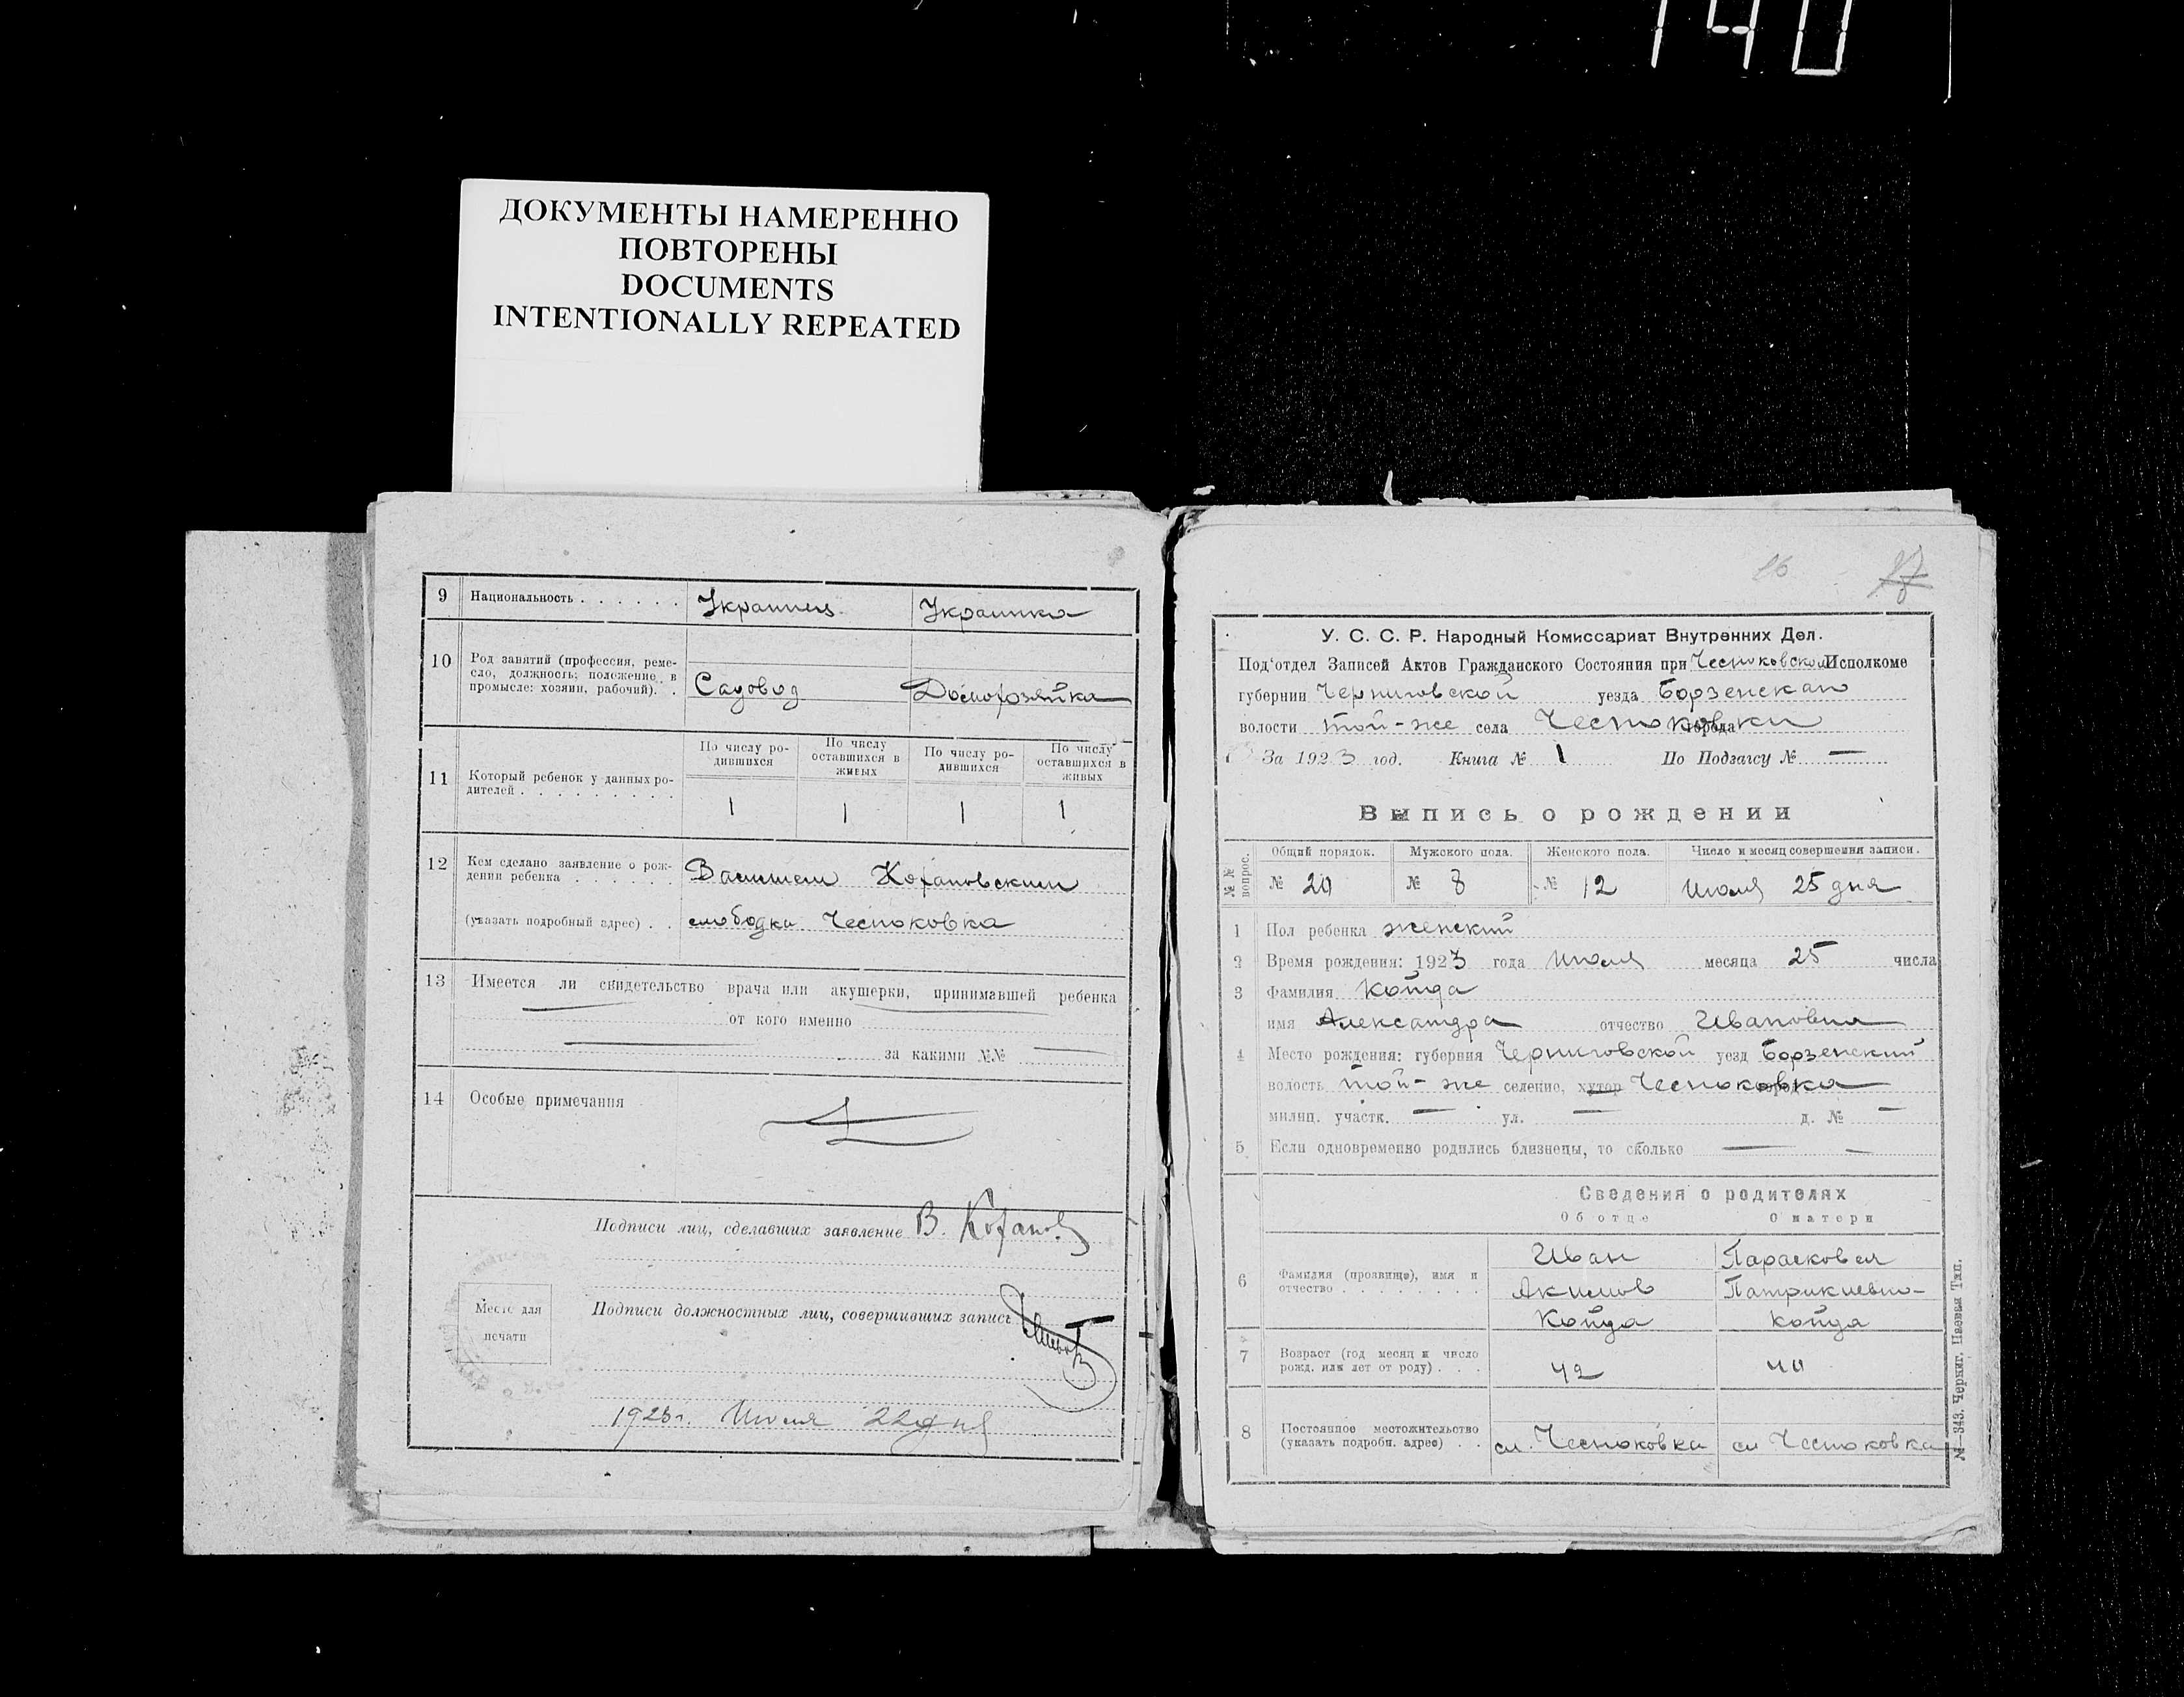 140
ДОКУМЕНТЫ НАМЕРЕННО
ПОВТОРЕНЫ
DOCUMENTS
INTENTIONALLY REPEATED
9 Национальность . . . . . . Украинец Украинка
10 Род занятий (профессия, реме-
сло, должность; положение в
промысле: хозяин, рабочий). . Садовод Домохозяйка
По числу ро-
дившихся По числу
оставшихся в
живых По числу ро-
дившихся По числу
оставшихся в
живых
11 Который ребенок у данных ро-
дителей . . . . . . . . . 1 1 1 1
12 Кем сделано заявление о рож-
дении ребенка . . . . . . . Василием Кохановским
(указать подробный адрес) . . слободки Чесноковка
13 Имеется ли свидетельство врача или акушерки, принимавшей ребенка
от кого именно
за какими №№ —
14 Особые примечания
Подписи лиц, сделавших заявление В. Кохано
Место для
печати
Подписи должностных лиц, совершивших запись
1923 г. Июля 22 дня
16 17
У. С. С. Р. Народный Комиссариат Внутренних Дел.
Под‘отдел Записей Актов Гражданского Состояния при Чесноковском Исполкоме
губернии Черниговской уезда Борзенскаго
волости той-же села Чесноковки города
За 1923 год. Книга № 1 По Подзагсу № —
Выпись о рождении
№№ вопрос. Общий порядок. Мужского пола. Женского пола. Число и месяц совершения записи.
№ 20 № 8 № 12 Июля 25 дня
1 Пол ребенка женский
2 Время рождения: 1923 года Июля месяца 25 числа
3 Фамилия Койда
имя Александра отчество Ивановна
4 Место рождения: губерния Черниговской уезд Борзенский
волость той-же селение, хутор Чесноковка город
милиц. участк. — ул. — д. № —
5 Если одновременно родились близнецы, то сколько — —
Сведения о родителях
Об отце О матери
6 Фамилия (прозвище), имя и
отчество . . . . . . . . Иван Акимов Койда Парасковея Патрикиевна Койда
7 Возраст (год месяц и число
рожд. или лет от роду) . . . 42 40
8 Постоянное местожительство
(указать подробн. адрес) . . сл. Чесноковка сл Чесноковка
№—343. Черниг. Цаевая Тип.